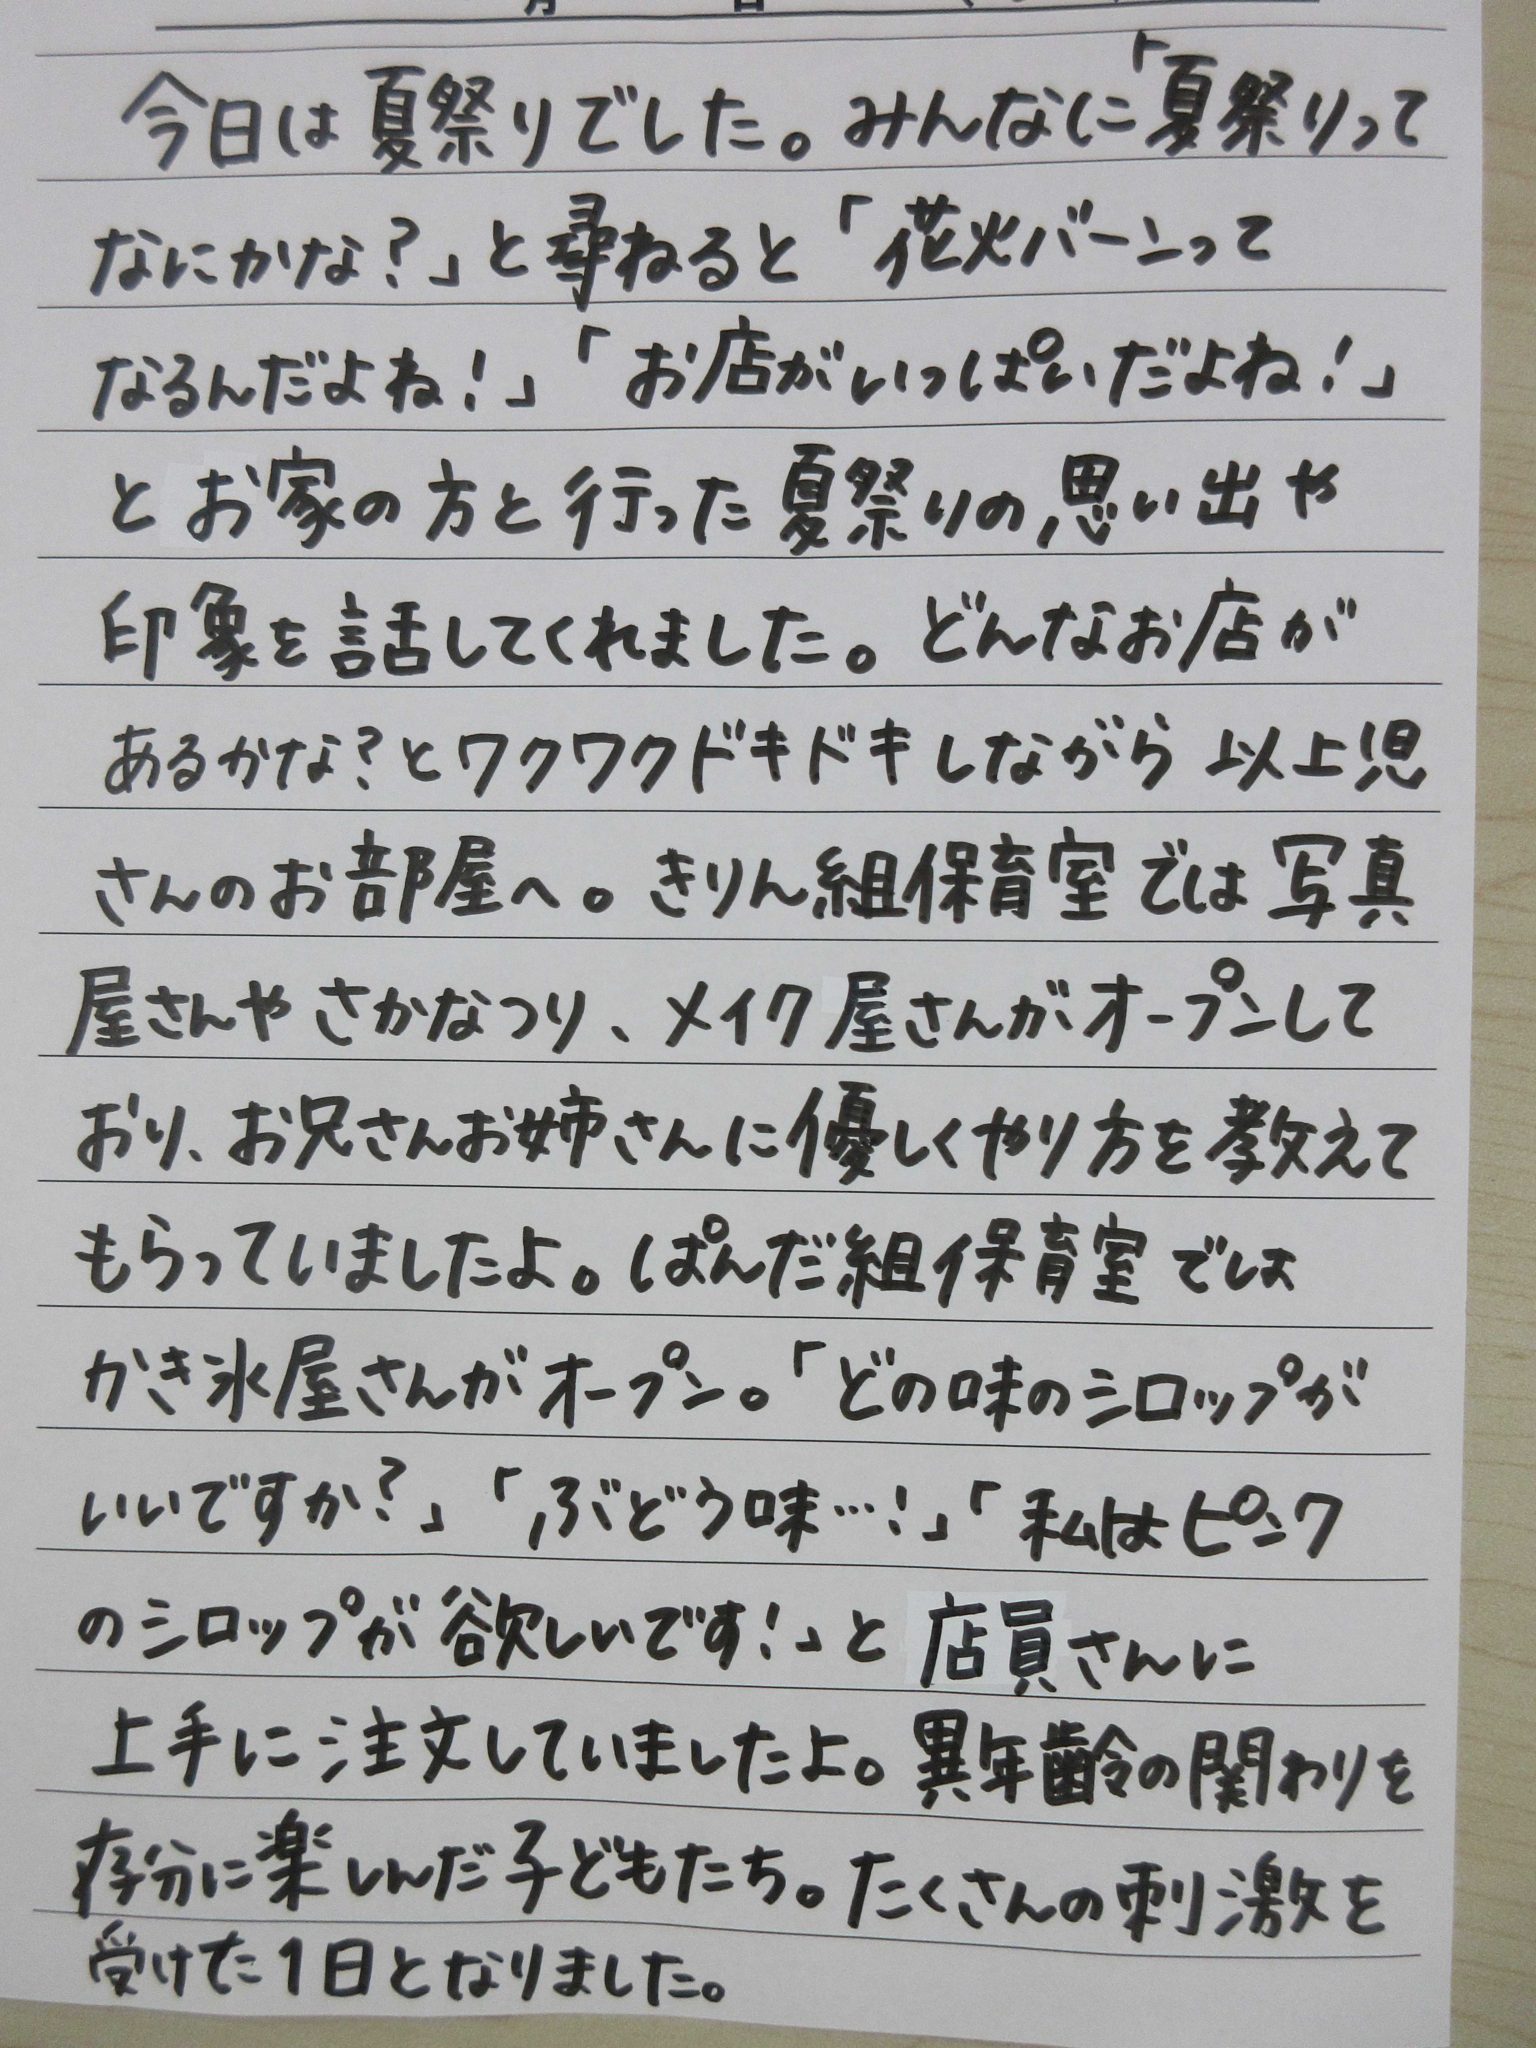 今日は夏祭りでした。みんなに「夏祭りって
なにかな?」と尋ねると「花火バーンって
なるんだよね!」「お店がいっぱいだよね!」
とお家の方と行った夏祭りの思い出や
印象を話してくれました。どんなお店が
あるかな?とワクワクドキドキしながら以上児
さんのお部屋へ。きりん組保育室では写真
屋さんやさかなつり、メイク屋さんがオープンして
おり、お兄さんお姉さんに優しくやり方を教えて
もらっていましたよ。ぱんだ組保育室では
かき氷屋さんがオープン。「どの味のシロップが
いいですか?」「ぶどう味…!」「私はピンク
のシロップが欲しいです!」と店員さんに
上手に注文していましたよ。異年齢の関わりを
存分に楽しんだ子どもたち。たくさんの刺激を
受けた1日となりました。